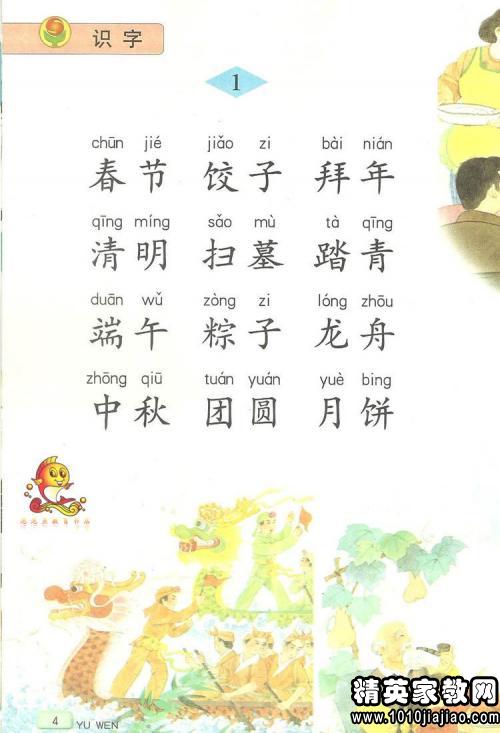 识字
1
chūn jié jiǎo zi bài nián
春节 饺子 拜年
qīng míng sǎo mù tà qīng
清明 扫墓 踏青
duān wǔ zòng zi lóng zhōu
端午 粽子 龙舟
zhōng qiū tuán yuán yuè bing
中秋 团圆 月饼
4 YU WEN
精英家教网
www.1010jiajiao.com